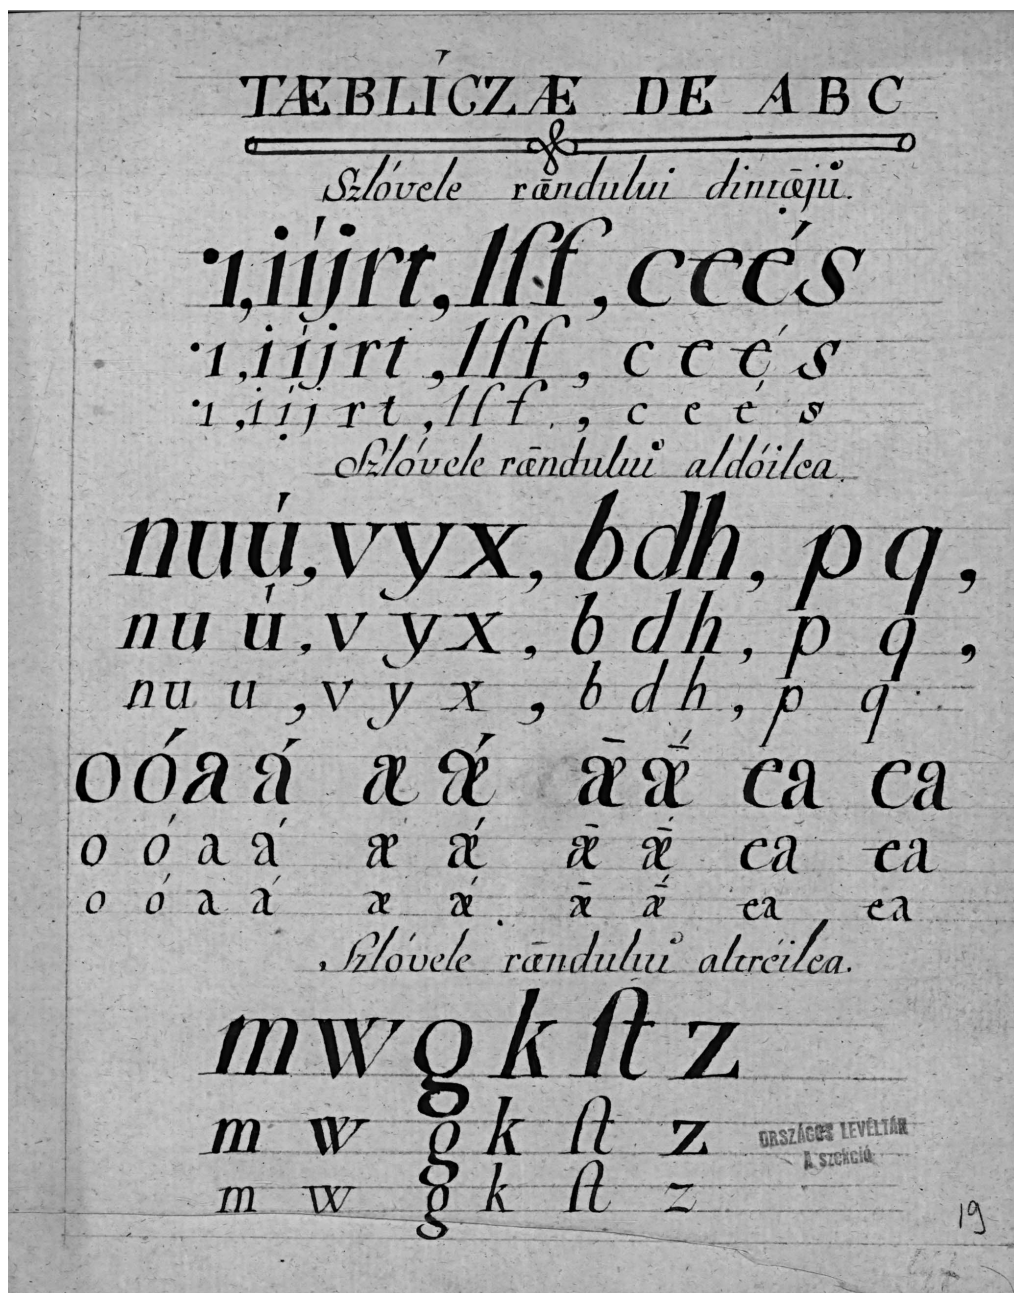 TÆBLÍCZÆ DE ABC
Szlóvele rændului dintæju.
ı,iíjrt,lſf,ceés
ı,iíjrt,lſf,ceés
ı,iíjrt,lſf,ceés
Szlóvele rændului aldóilea.
nuú,vyx,bdh,pq,
nuú,vyx,bdh,pq,
nuu,vyx,bdh,pq.
oóaá æ ǽ ǣ ǣ́ ea ea
o ó a á æ ǽ ǣ ǣ́ ea ea
o ó a á æ ǽ ǣ ǣ́ ea ea
Szlóvele rændului altréilea.
m w g k ſt z
m w g k ſt z
ORSZÁGOS LEVÉLTÁR
A szekció
m w g k ſt z
19